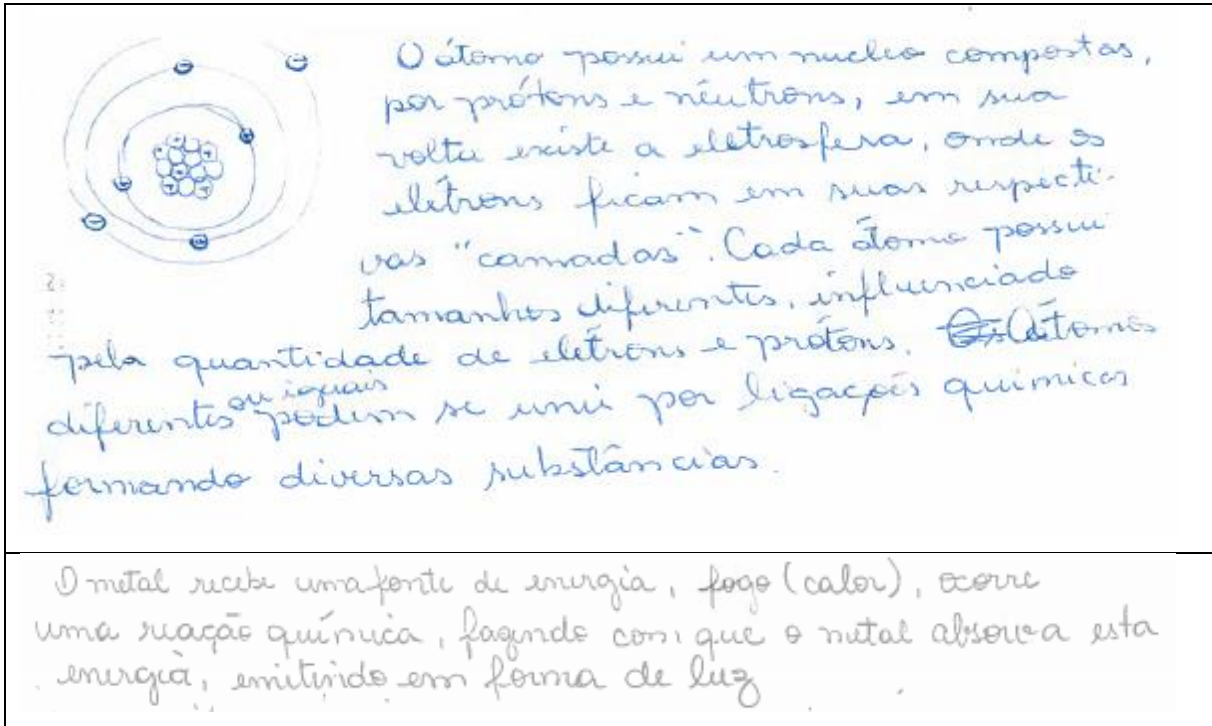 O átomo possui um nucleo compostas,
por prótons e nêutrons, em sua
volta existe a eletrosfera, onde os
elétrons ficam em suas respecti-
vas "camadas". Cada átomo possui
tamanhos diferentes, influenciado
pela quantidade de elétrons e prótons. Átomos
diferentes ou iguais podem se unir por ligações químicas
formando diversas substâncias.
O metal recebe uma fonte de energia, fogo (calor), ocorre
uma reação química, fazendo com que o metal absorva esta
energia, emitindo em forma de luz